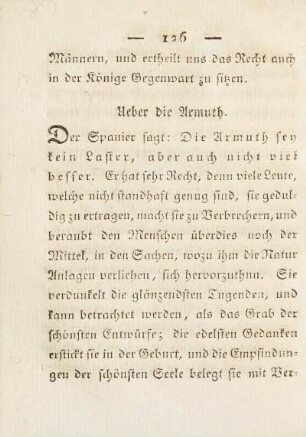 — 126 —
Männern, und ertheilt uns das Recht auch
in der Könige Gegenwart zu sitzen.
Ueber die Armuth.
Der Spanier sagt: Die Armuth sey
kein Laster, aber auch nicht viel
besser. Er hat sehr Recht, denn viele Leute,
welche nicht standhaft genug sind, sie gedul-
dig zu ertragen, macht sie zu Verbrechern, und
beraubt den Menschen überdies noch der
Mittel, in den Sachen, wozu ihm die Natur
Anlagen verliehen, sich hervorzuthun. Sie
verdunkelt die glänzendsten Tugenden, und
kann betrachtet werden, als das Grab der
schönsten Entwürfe; die edelsten Gedanken
erstickt sie in der Geburt, und die Empfindun-
gen der schönsten Seele belegt sie mit Ver-